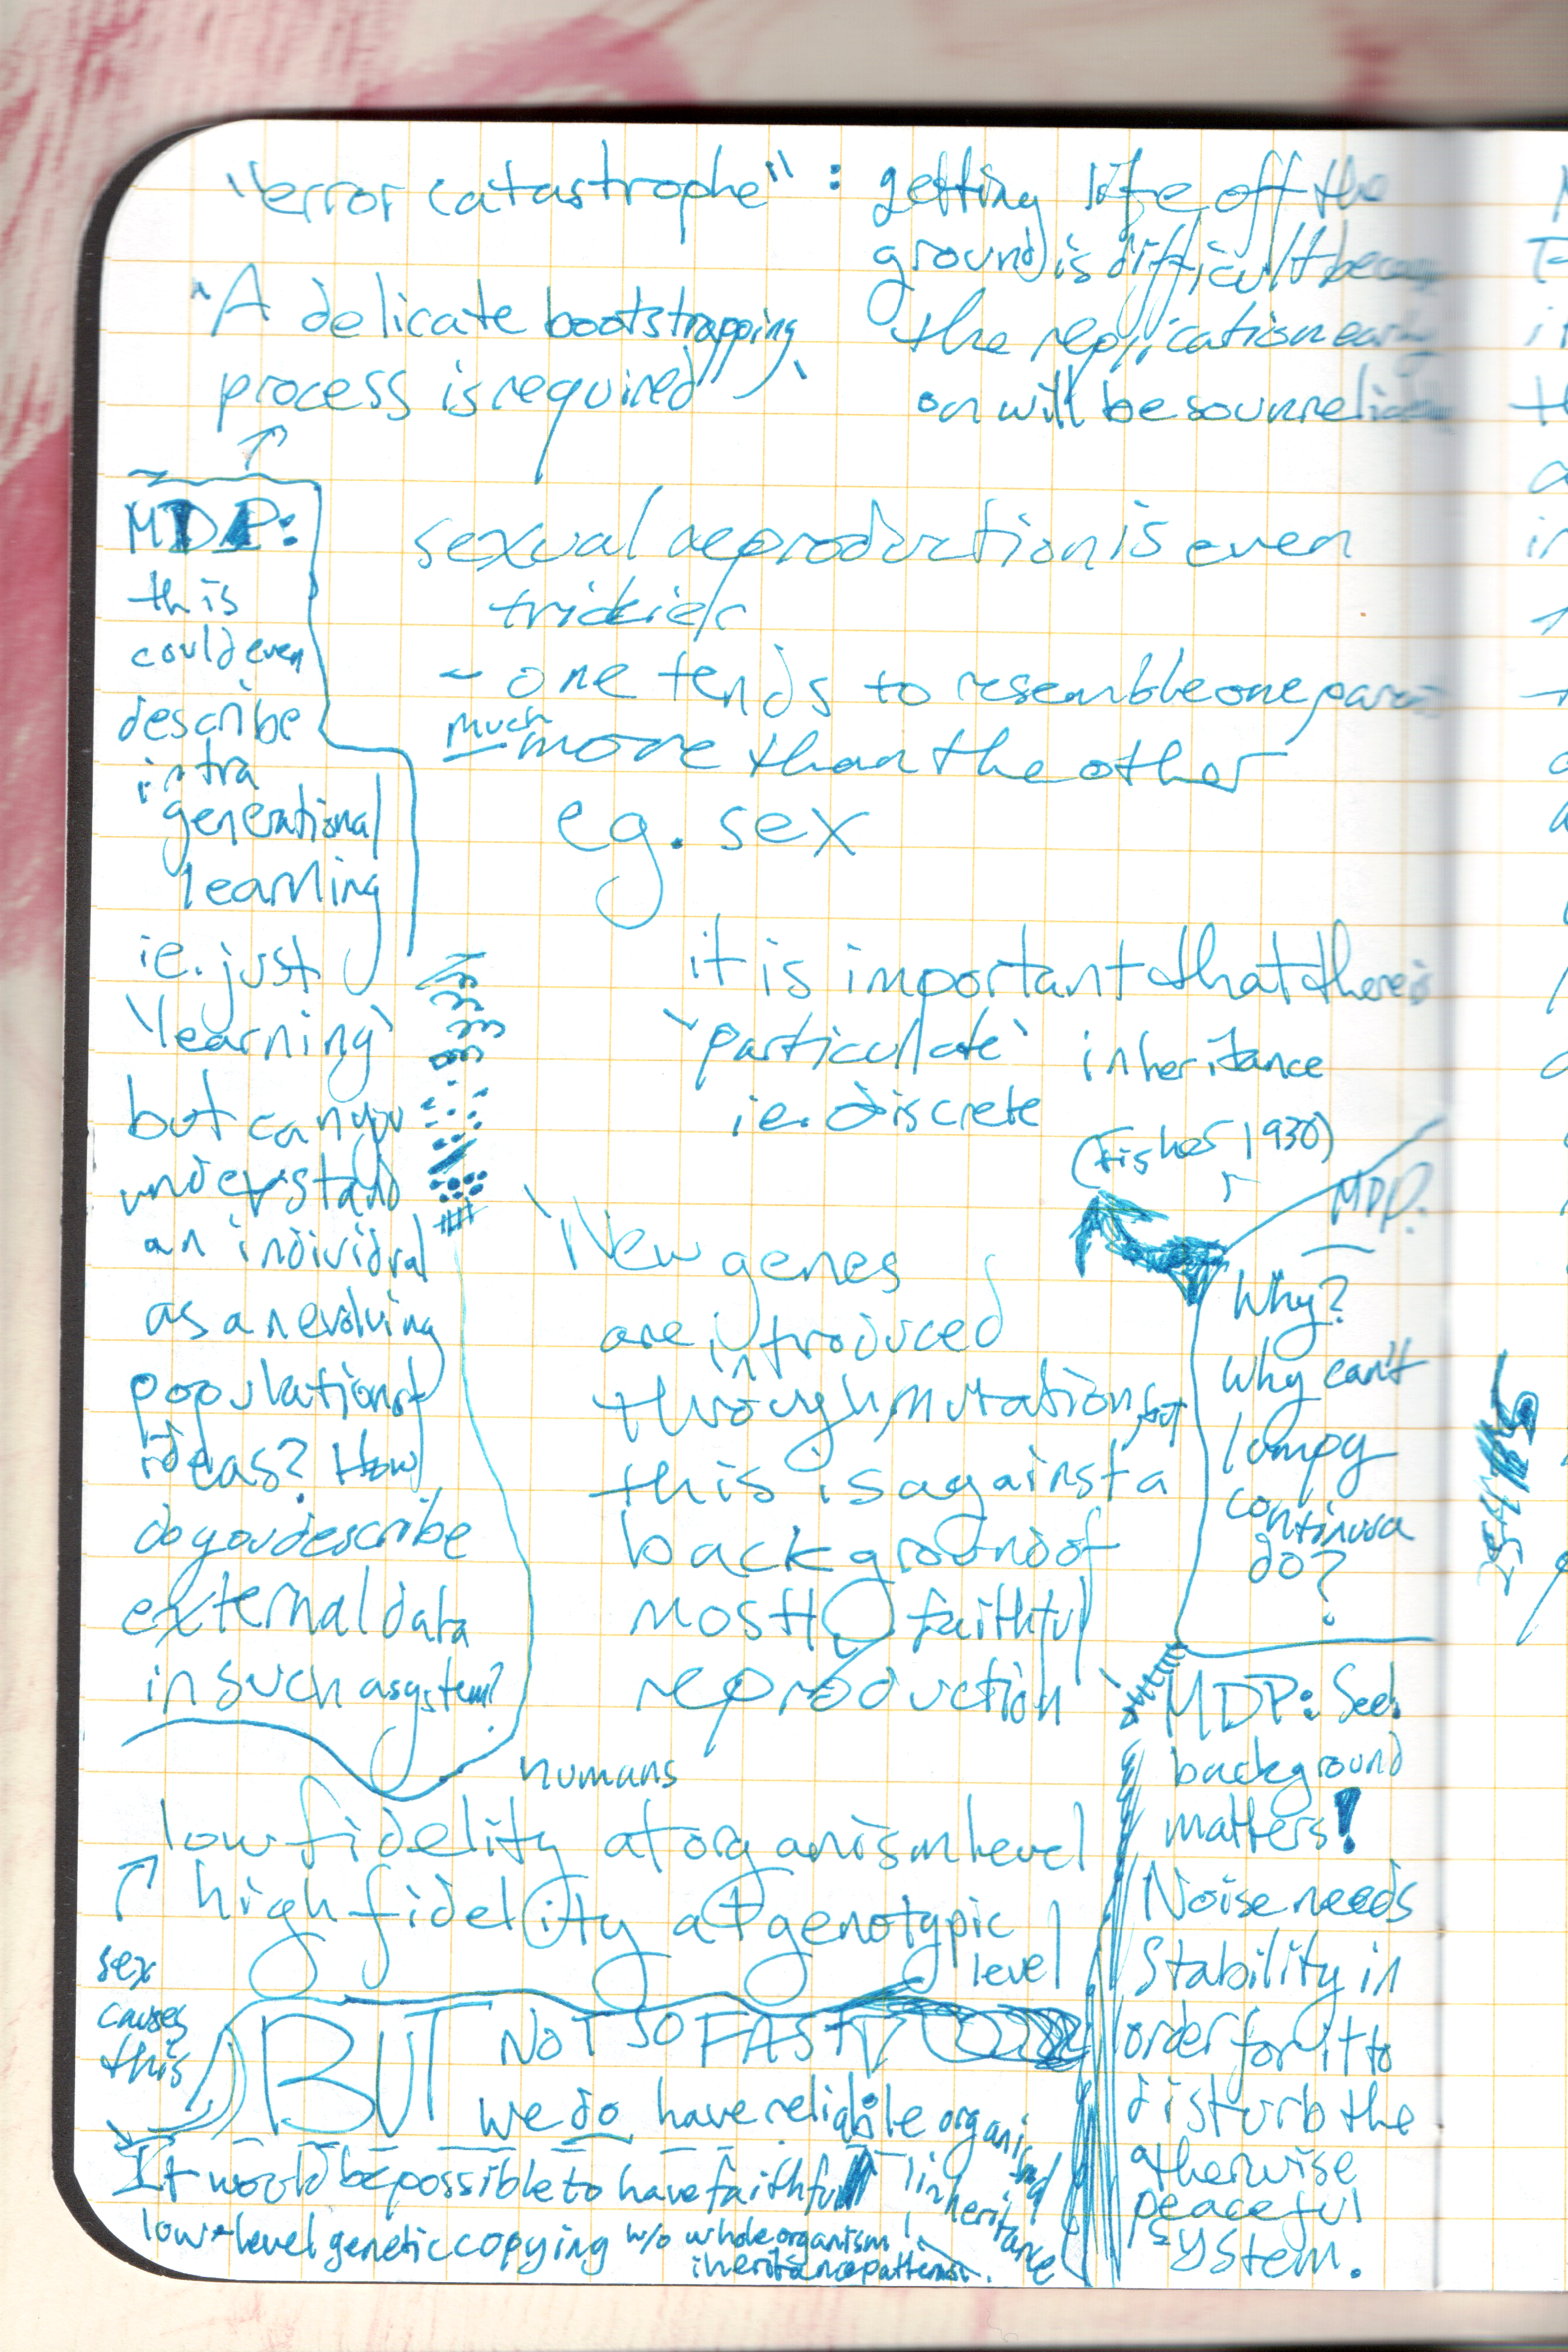 "error catastrophe" : getting life off the
ground is difficult because
the replication early
on will be so unreliable
"A delicate bootstrapping
process is required"
MDP:
this
could even
describe
intra
generational
learning
ie. just
'learning'
but can you
understand
an individual
as an evolving
population of
ideas? How
do you describe
external data
in such a system?
sexual reproduction is even
trickier
- one tends to resemble one parent
much
more than the other
eg. sex
it is important that there is
'particulate' inheritance
ie. discrete
(Fisher 1930)
MDP:
Why?
Why can't
lumpy
continua
do?
New genes
are introduced
through mutation, but
this is against a
background of
mostly faithful
reproduction
MDP: See!
background
matters!
Noise needs
stability in
order for it to
disturb the
otherwise
peaceful
system.
humans
low fidelity at organism level
high fidelity at genotypic
level
sex
causes
this
BUT NOT SO FAST
we do have reliable
inheritance
It would be possible to have faithful
low-level genetic copying w/o whole organism
inheritance patterns.